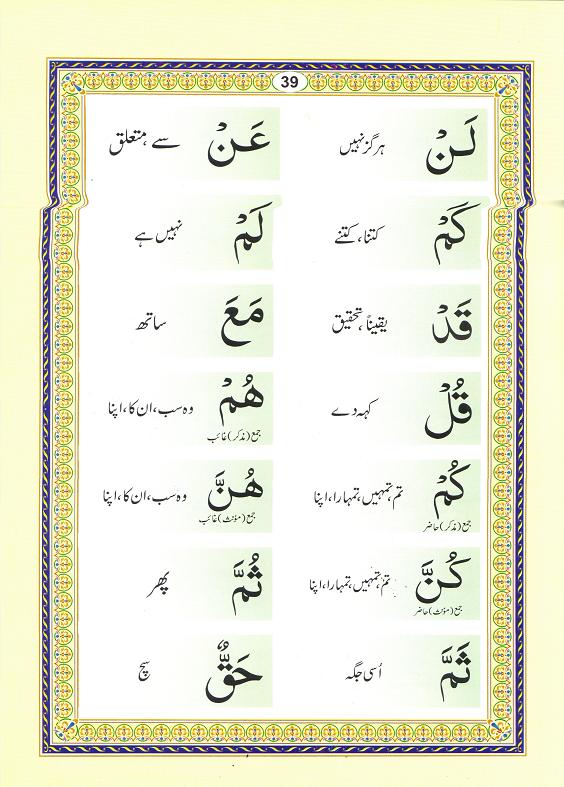 39
لَنْ ہرگز نہیں عَنْ سے، متعلق
كَمْ کتنا، کتنے لَمْ نہیں ہے
قَدْ یقیناً، تحقیق مَعَ ساتھ
قُلْ کہہ دے هُمْ وہ سب، ان کا، اپنا
جمع (مذکر) غائب
كُمْ تم، تمہیں، تمہارا، اپنا هُنَّ وہ سب، ان کا، اپنا
جمع (مذکر) حاضر جمع (مؤنث) غائب
كُنَّ تم، تمہیں، تمہارا، اپنا ثُمَّ پھر
جمع (مؤنث) حاضر
ثَمَّ اُسی جگہ حَقٌّ سچ